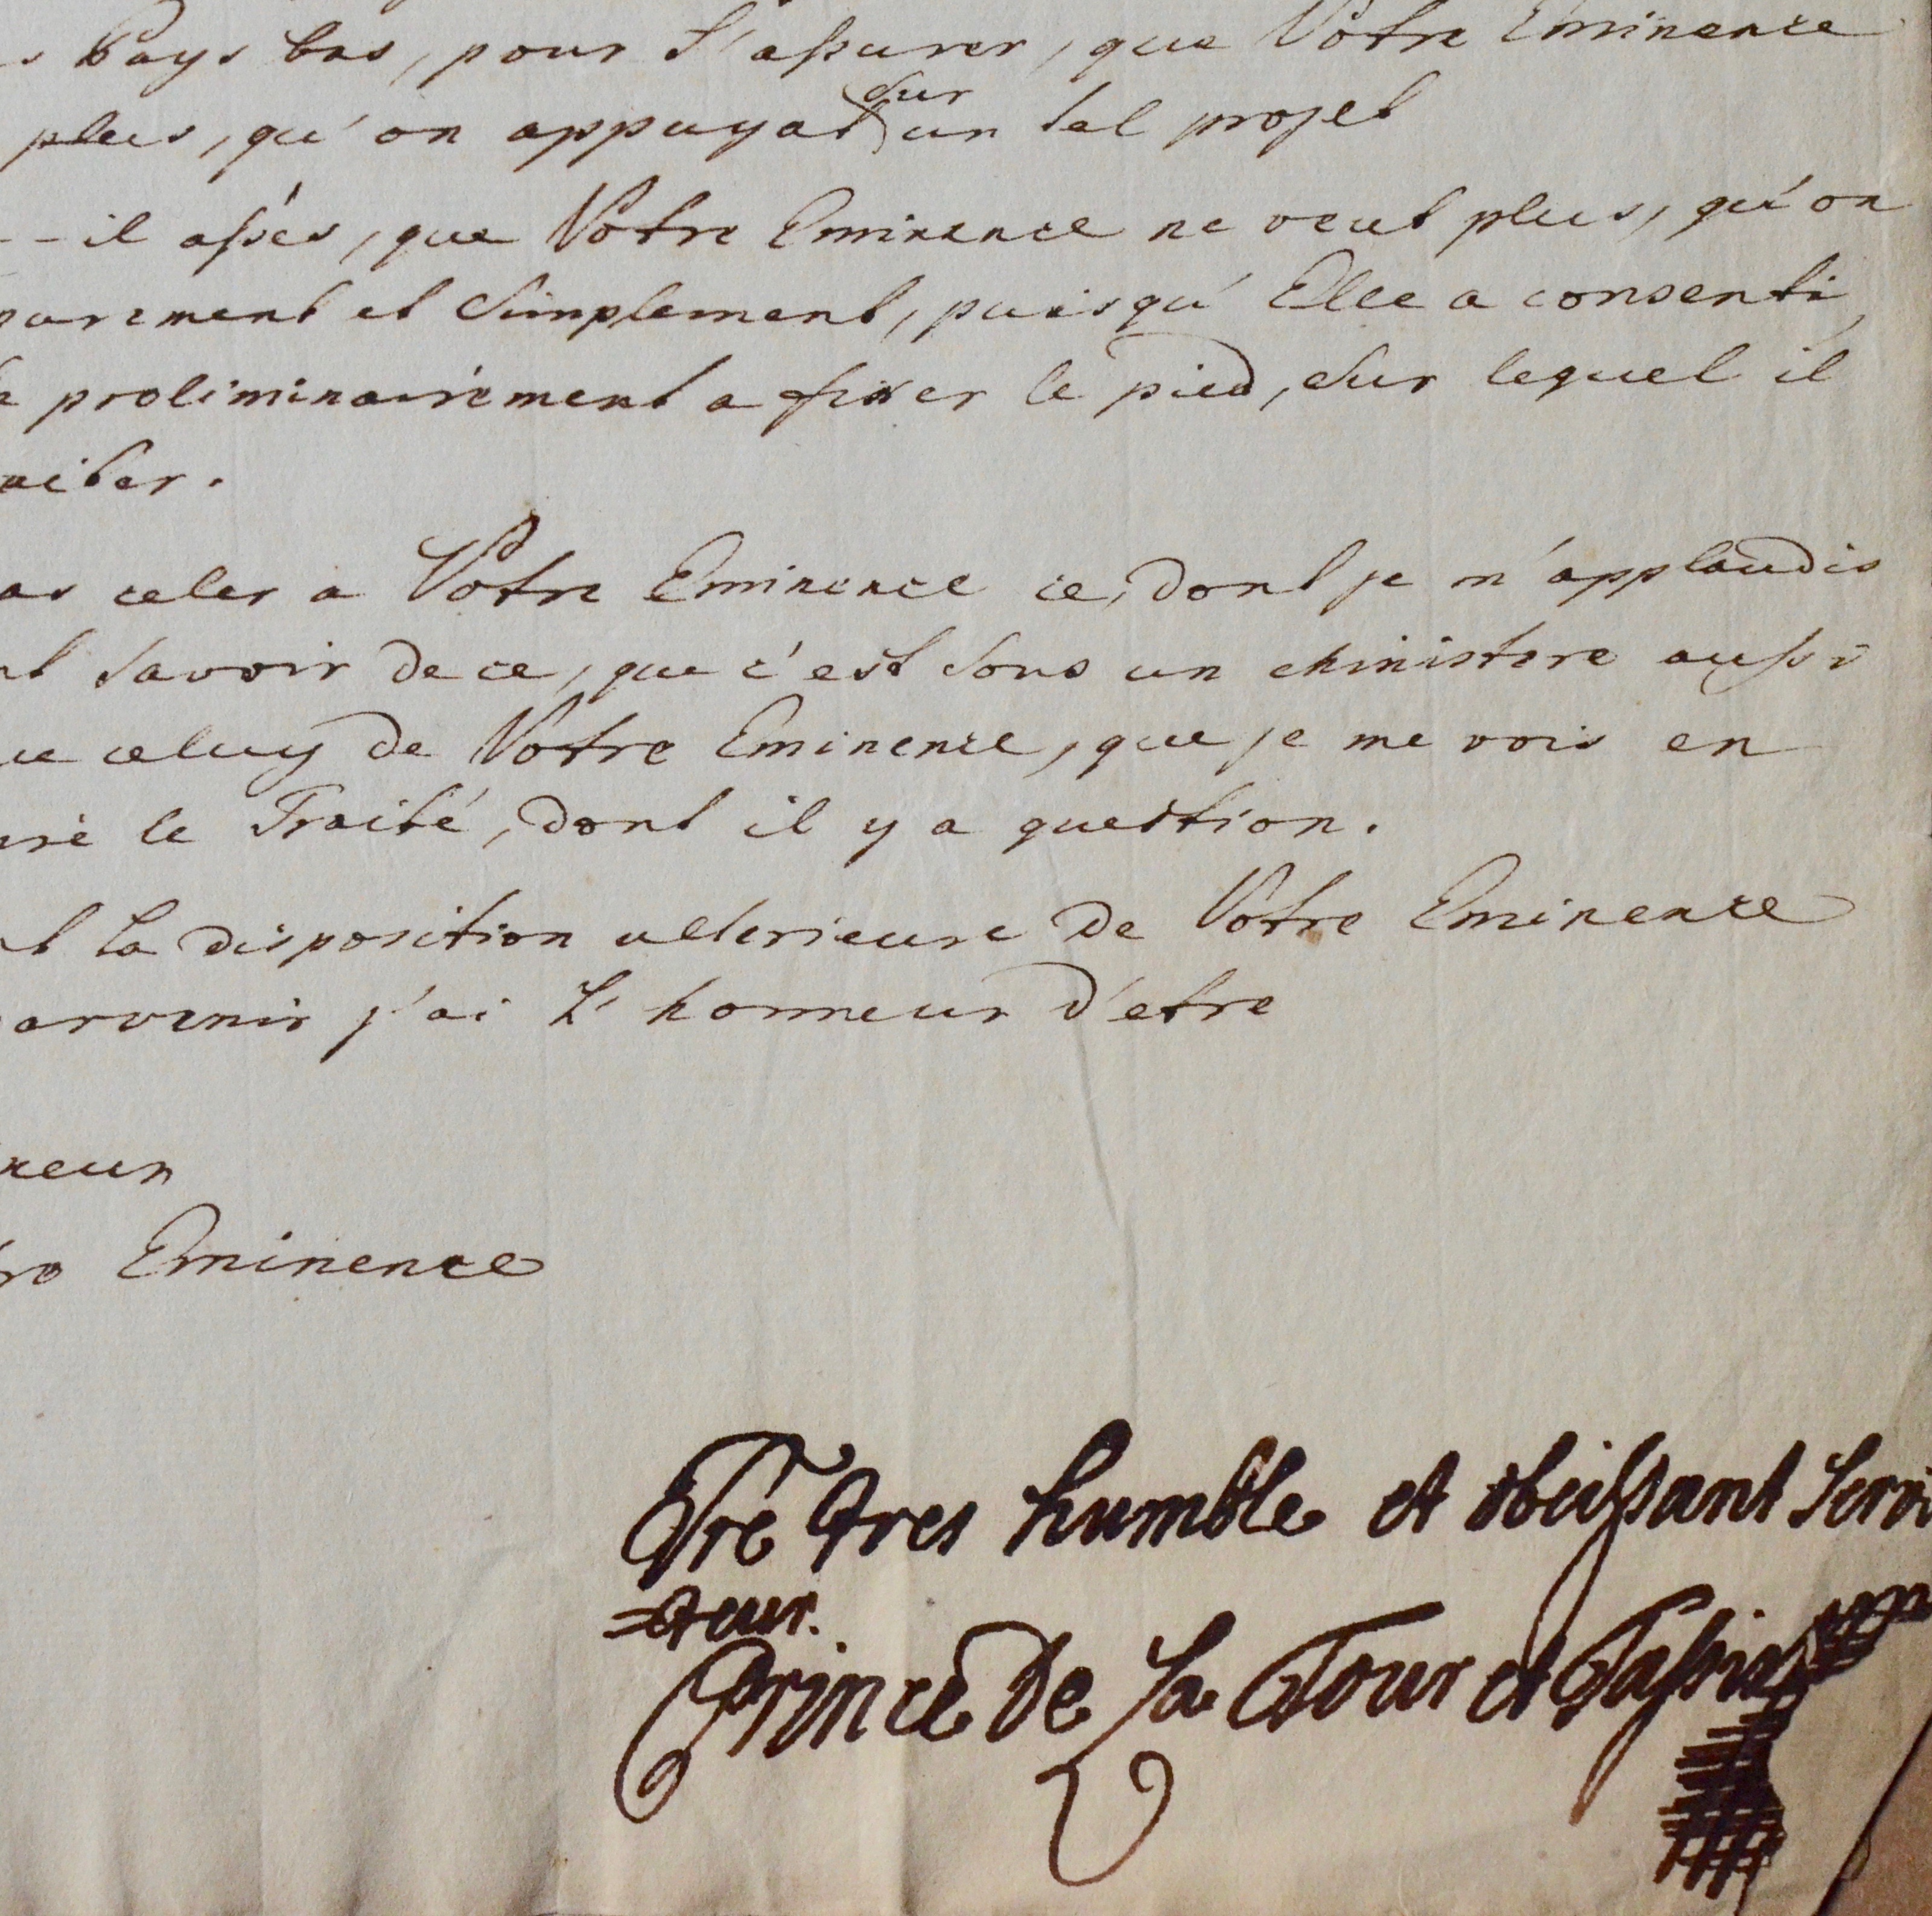 s Pays bas, pour s'assurer, que Votre Eminence
plus, qu'on appuyat sur un tel projet
-- il assés, que Votre Eminence ne veut plus, qu'on
purement et simplement, puisqu'Elle a consenti,
proliminairement a fixer le pied, sur lequel il
aiter.
as celer a Votre Eminence ce, dont je m'applaudis
t savoir de ce, que c'est sous un Ministere aussi
ue celuy de Votre Eminence, que je me vois en
uré le Traité, dont il y a question.
t la disposition ulterieure de Votre Eminence
arvenir j'ai L'honneur d'etre
neur
ro Eminence
Vre tres humble et obeissant Servi
=teur.
Prince de La Tour et Tassis